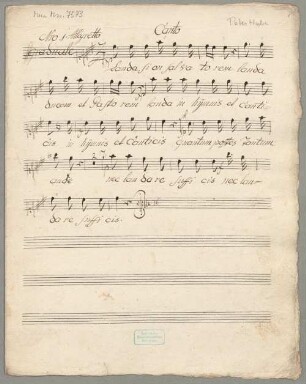 Mus. Mss. 7543
No. 1 Allegretto Canto
Graduale
Lauda Sion salvatorem lauda
ducem et Pastorem lauda in hymnis et canti-
cis in hymnis et Canticis Quantum potes tantum
aude nec laudare suffi cis nec lau-
da re suffi cis.